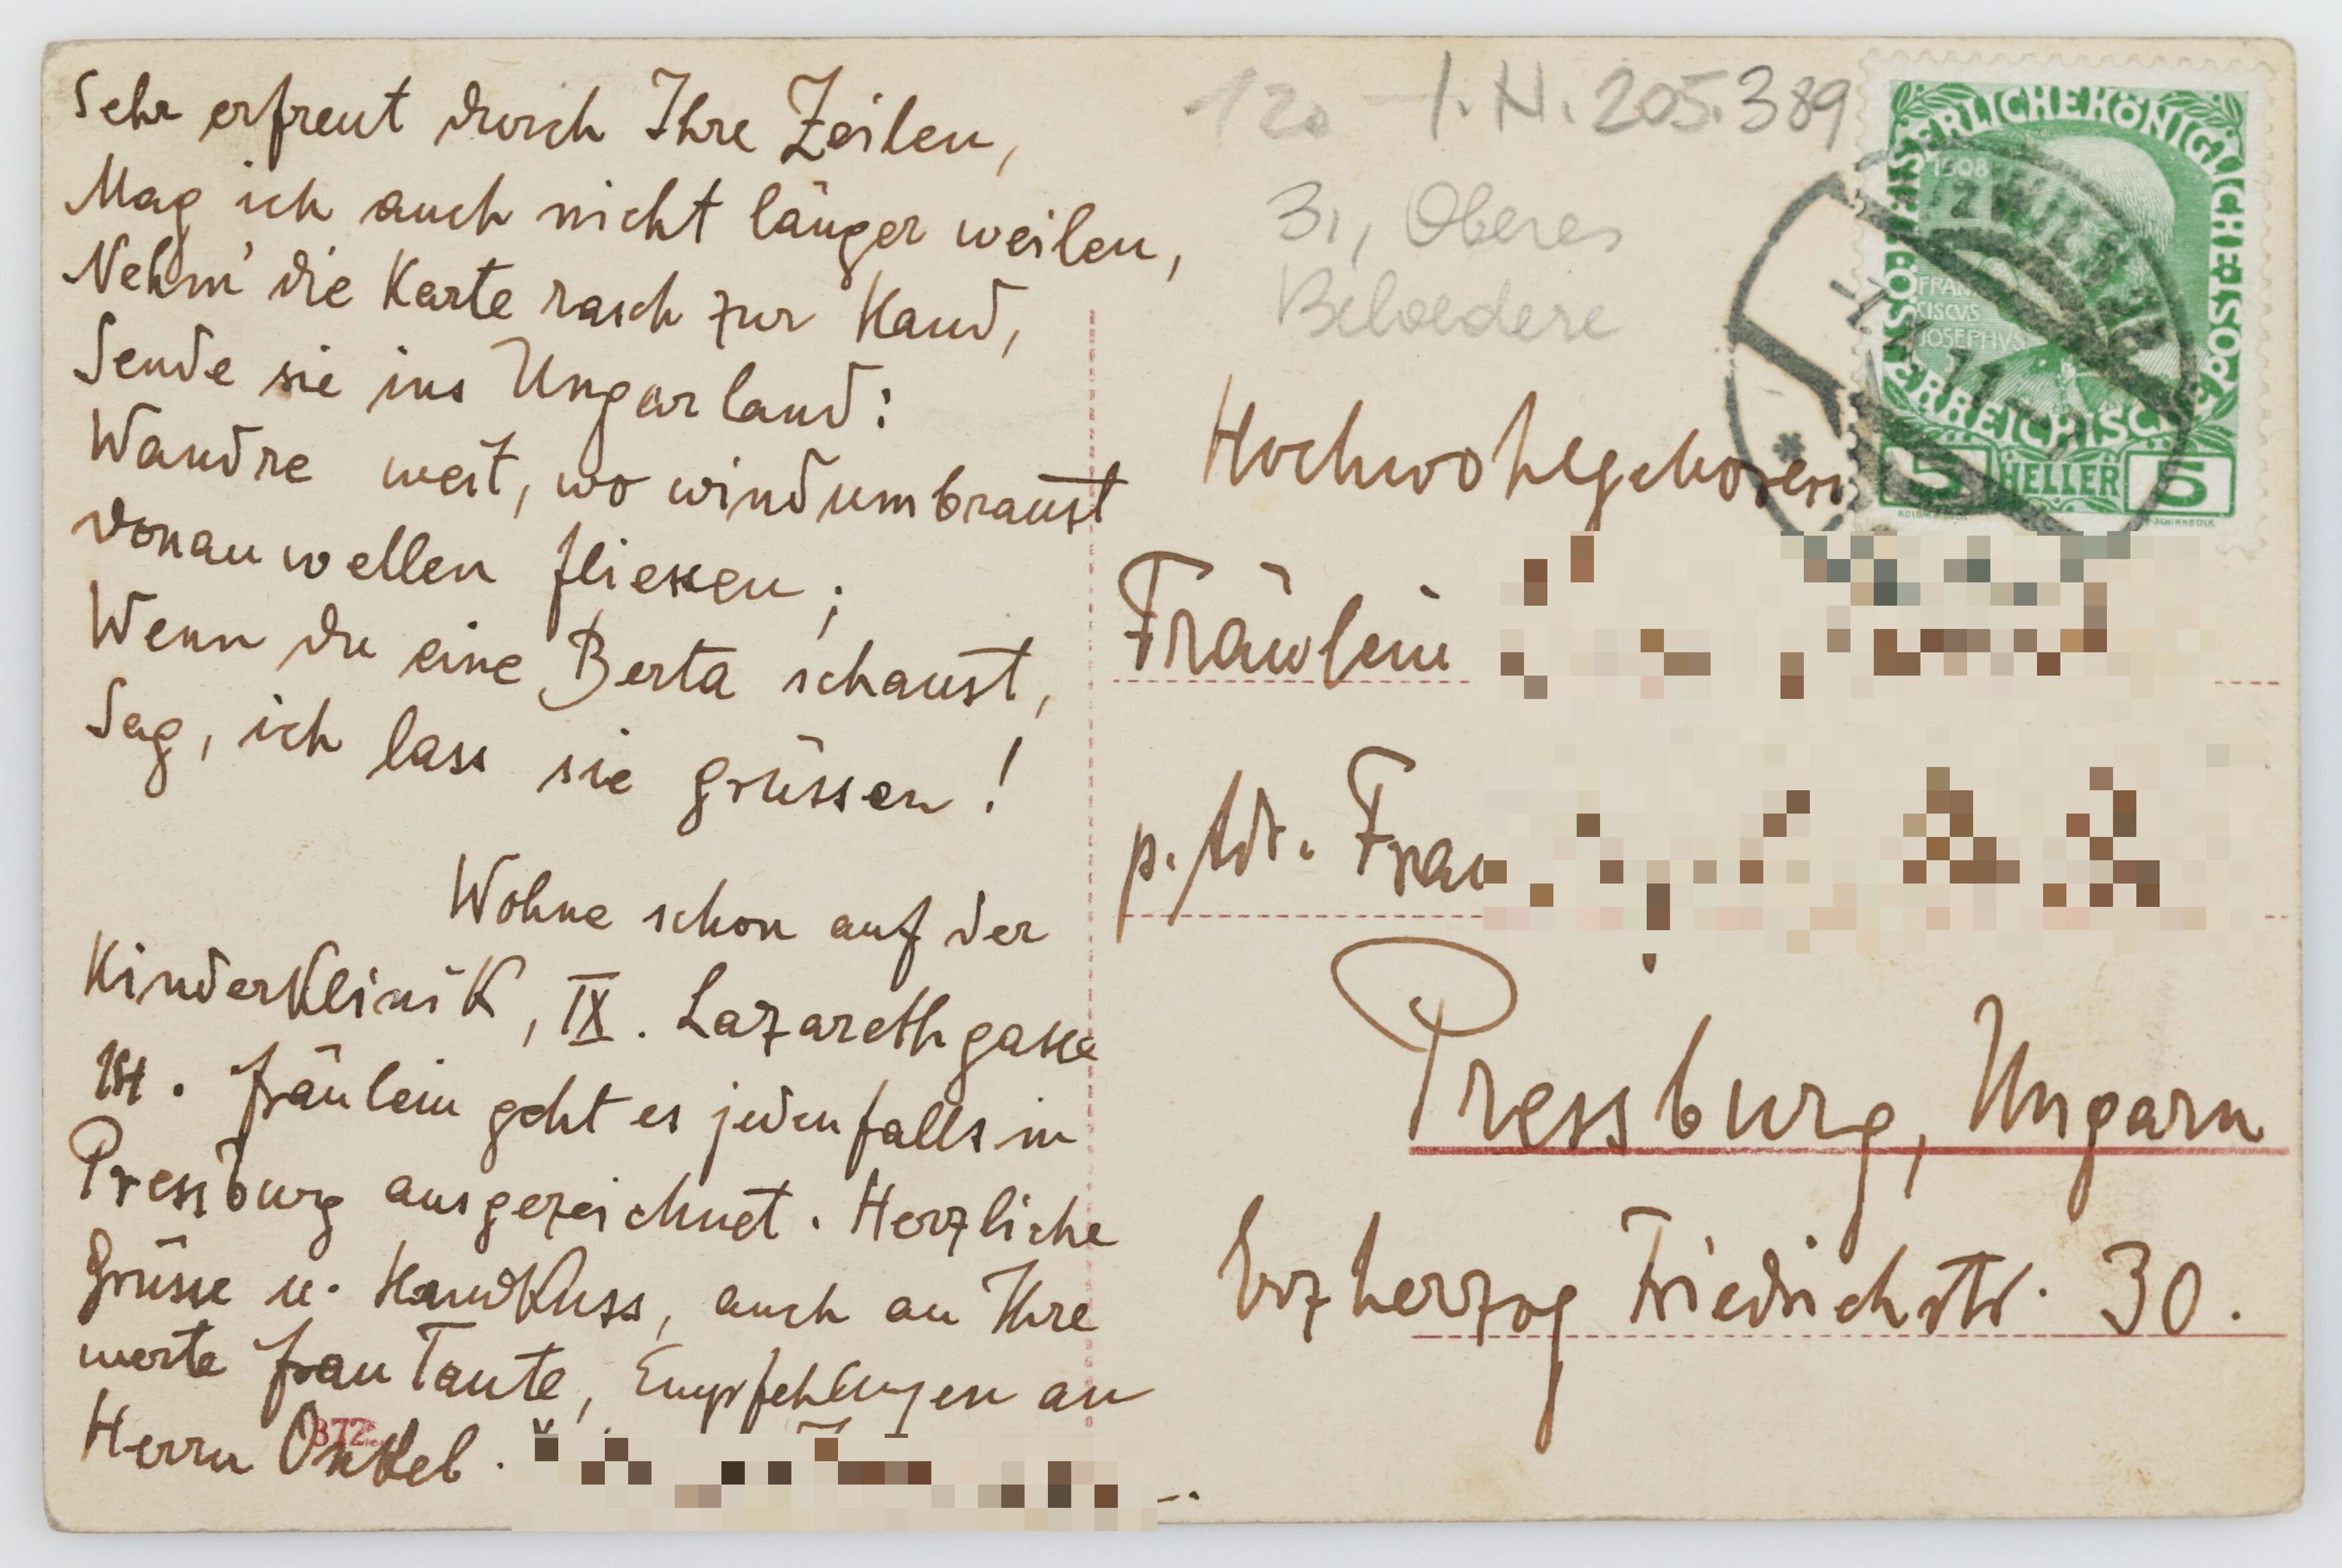 Sehr erfreut durch Ihre Zeilen,
Mag ich auch nicht länger weilen,
Nehm' die Karte rasch zur Hand,
Sende sie ins Ungarland:
Wandre weit, wo windumbraust
Donauwellen fliessen;
Wenn du eine Berta schaust,
Sag, ich lass sie grüssen!
Wohne schon auf der
Kinderklinik, IX. Lazarethgasse
14. Fräulein geht es jedenfalls in
Pressburg ausgezeichnet. Herzliche
Grüsse u. Handkuss, auch an Ihre
werte Frau Tante, Empfehlungen an
Herrn Onkel.
372
12. I.N. 205.389
3., Oberes
Belvedere
KAISERLICHEKÖNIGLICHE
ÖSTERREICHISCHE POST
1908
FRAN
CISCVS
JOSEPHVS
5 HELLER 5
WIEN
11
Hochwohlgeboren
Fräulein
p. Adr. Frau
Pressburg, Ungarn
Erzherzog Friedrichstr. 30.